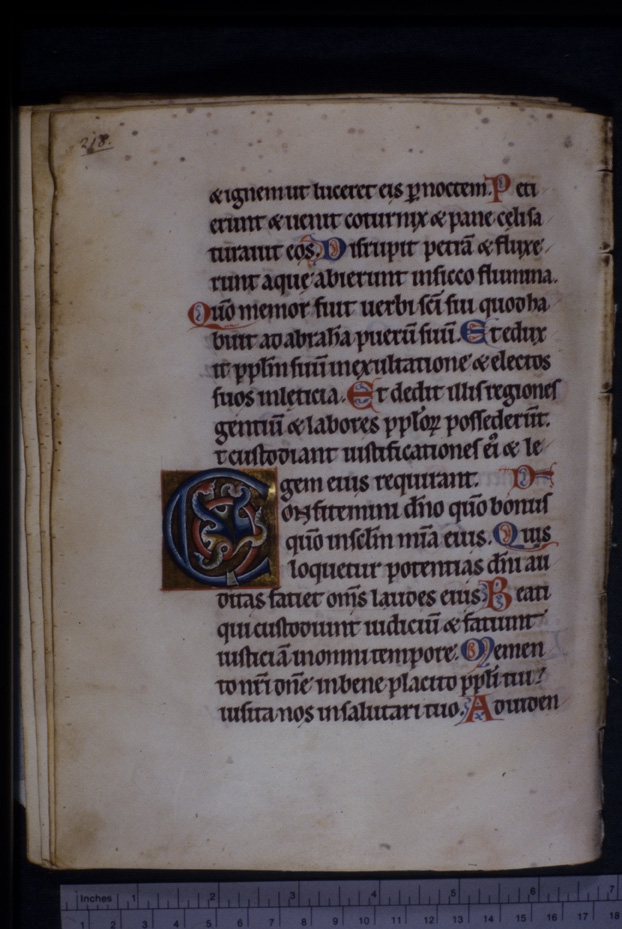 218.
& ignem ut luceret eis p̱ noctem. Peti
erunt & uenit coturnix & pane celi sa
turauit eos. Disrupit petrā & fluxe
runt aque abierunt in sicco flumina.
Qūo memor fuit uerbi sc̄i sui quod ha
buit ad abrahā puerū suū. Et edux
it pp̄lm suū in exultatione & electos
suos in leticia. Et dedit illis regiones
gentiū & labores pp̄loꝝ possederūt.
t custodiant iustificationes ei᷒ & le
gem eius requirant.
Confitemini dn̄o qūo bonus
qūo in sc̄lm mīa eius. Quis
loquetur potentias dn̄i au
ditas faciet om̄s laudes eius. Beati
qui custodiunt iudiciū & faciunt
iusticiā in omni tempore. Memen
to nr̄i dn̄e in bene placito pp̄li tui
uisita nos in salutari tuo. Ad uiden
Inches 1 2 3 4 5 6 7
1 2 3 4 5 6 7 8 9 10 11 12 13 14 15 16 17 18